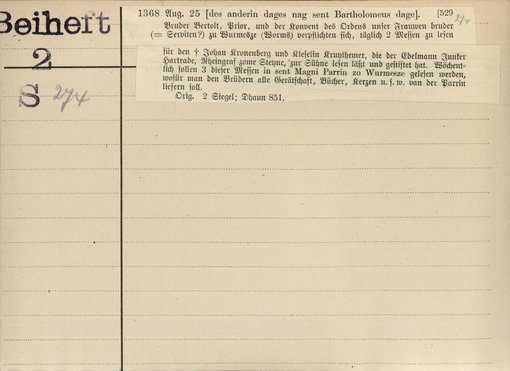 Beiheft
2
S 274
1368 Aug. 25 [des anderin dages nag sent Bartholomeus dage]. [529
274
Bruder Bertolt, Prior, und der Konvent des Ordens unser Frauwen bruder
(= Serviten?) zu Wurmesze (Worms) verpflichten sich, täglich 2 Messen zu lesen
für den † Johan Kronenberg und Klesekin Kruythemer, die der Edelmann Junker
Hartrade, Rheingraf zome Steyne, zur Sühne lesen läßt und gestiftet hat. Wöchent-
lich sollen 3 dieser Messen in sent Magni Parrin zo Wurmesze gelesen werden,
wofür man den Brüdern alle Gerätschaft, Bücher, Kerzen u. s. w. van der Parrin
liefern soll.
Orig. 2 Siegel; Dhaun 851.